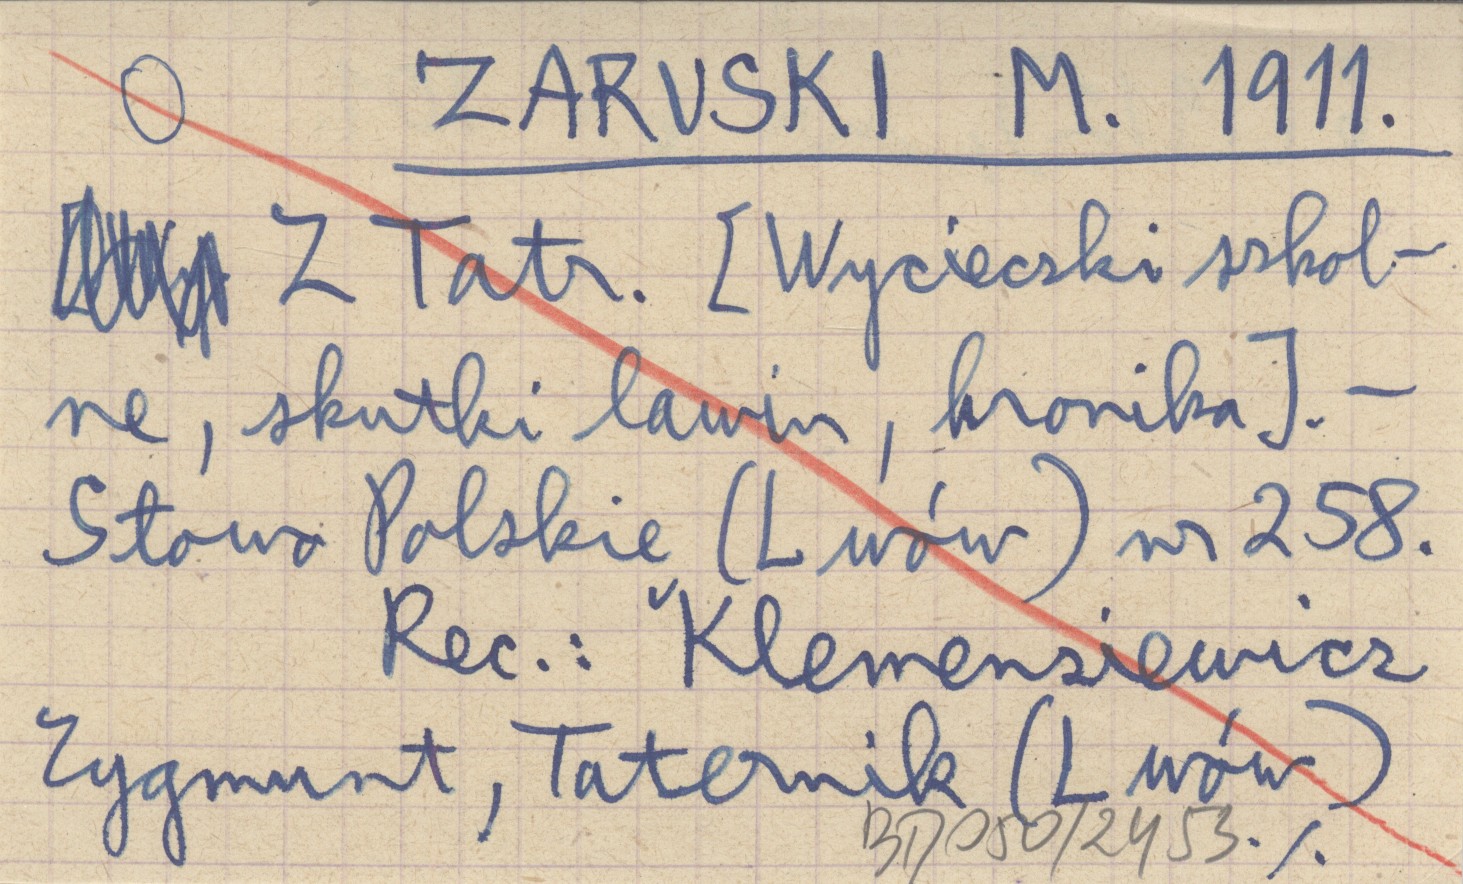 ZARUSKI M. 1911.
Z Tatr. [Wycieczki szkol-
ne, skutki lawin, kronika]. -
Słowo Polskie (Lwów) nr 258.
Rec.: Klemensiewicz
Zygmunt, Taternik (Lwów)
./.